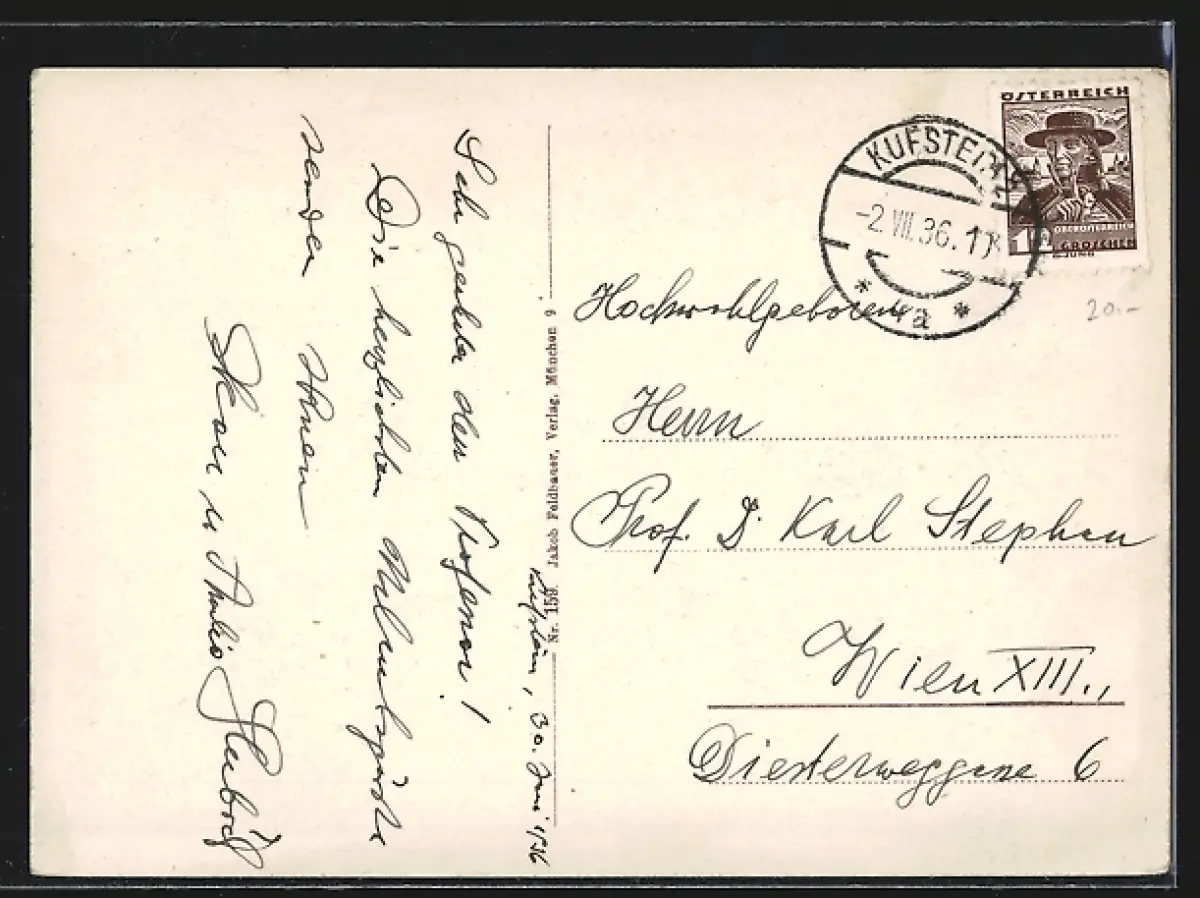 Kufstein, 30. Juni 1936
Sehr geehrter Herr Professor!
Die herzlichsten Urlaubsgrüße
senden Ihnen
Nr. 159. Jakob Feldbauer, Verlag, München 9
ÖSTERREICH
OBERÖSTERREICH
GROSCHEN
KUFSTEIN
-2.VII.36.1
* 4a *
20.-
Hochwohlgeboren
Herrn
Prof. D. Karl Stephan
Wien XIII.,
Diesterweggasse 6